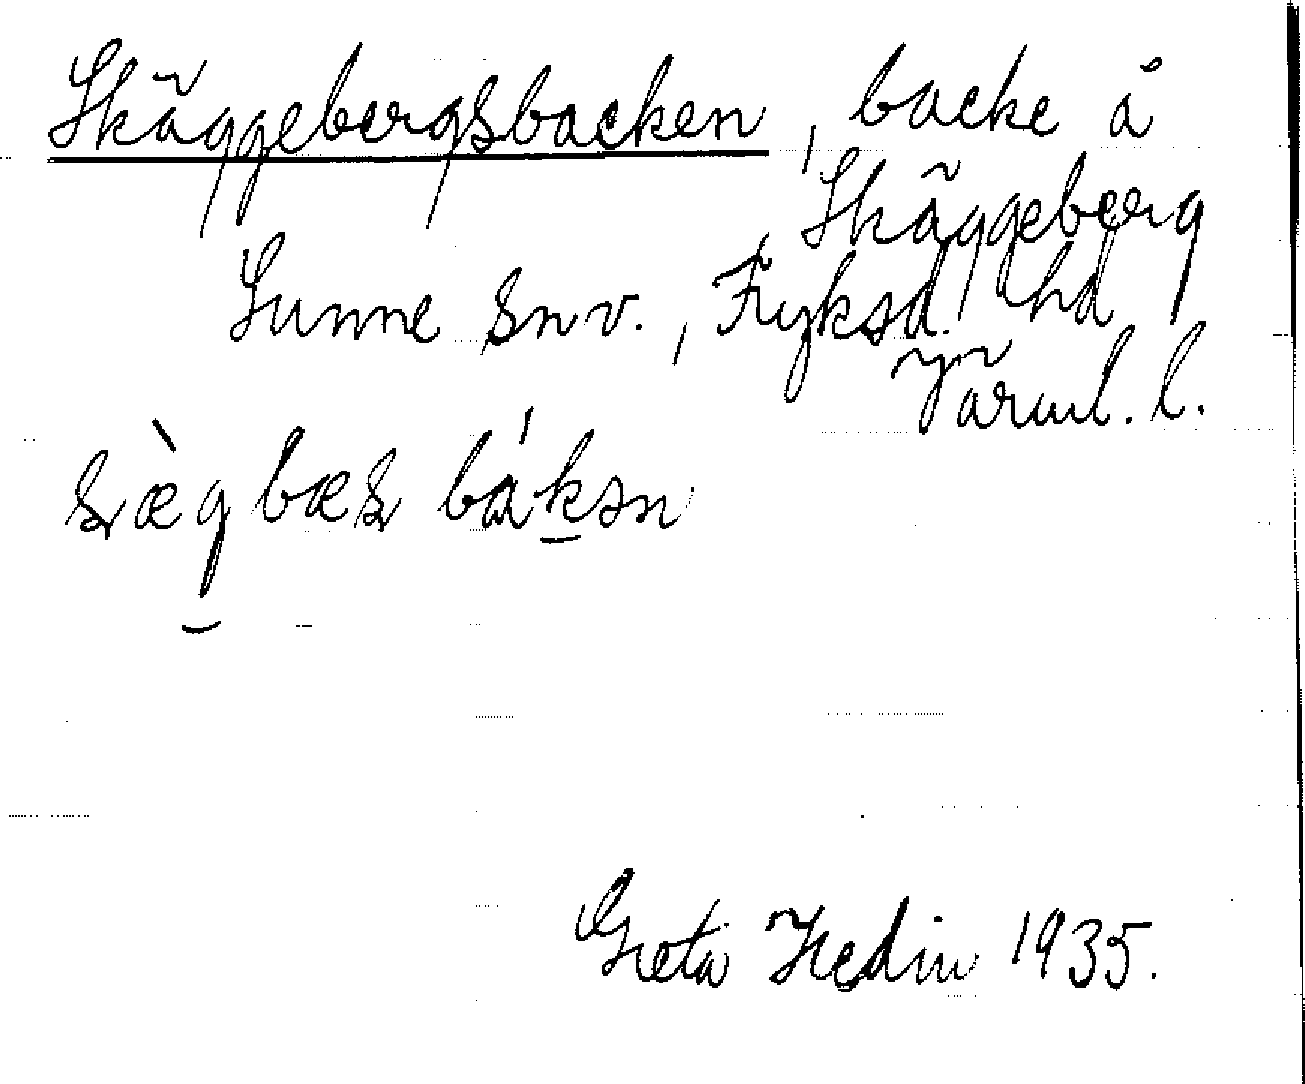 Skäggebergsbacken, backe å
Skäggeberg
Sunne snv., Fryksd. hd
Värml. l.
bák
Greta Hedin 1935.